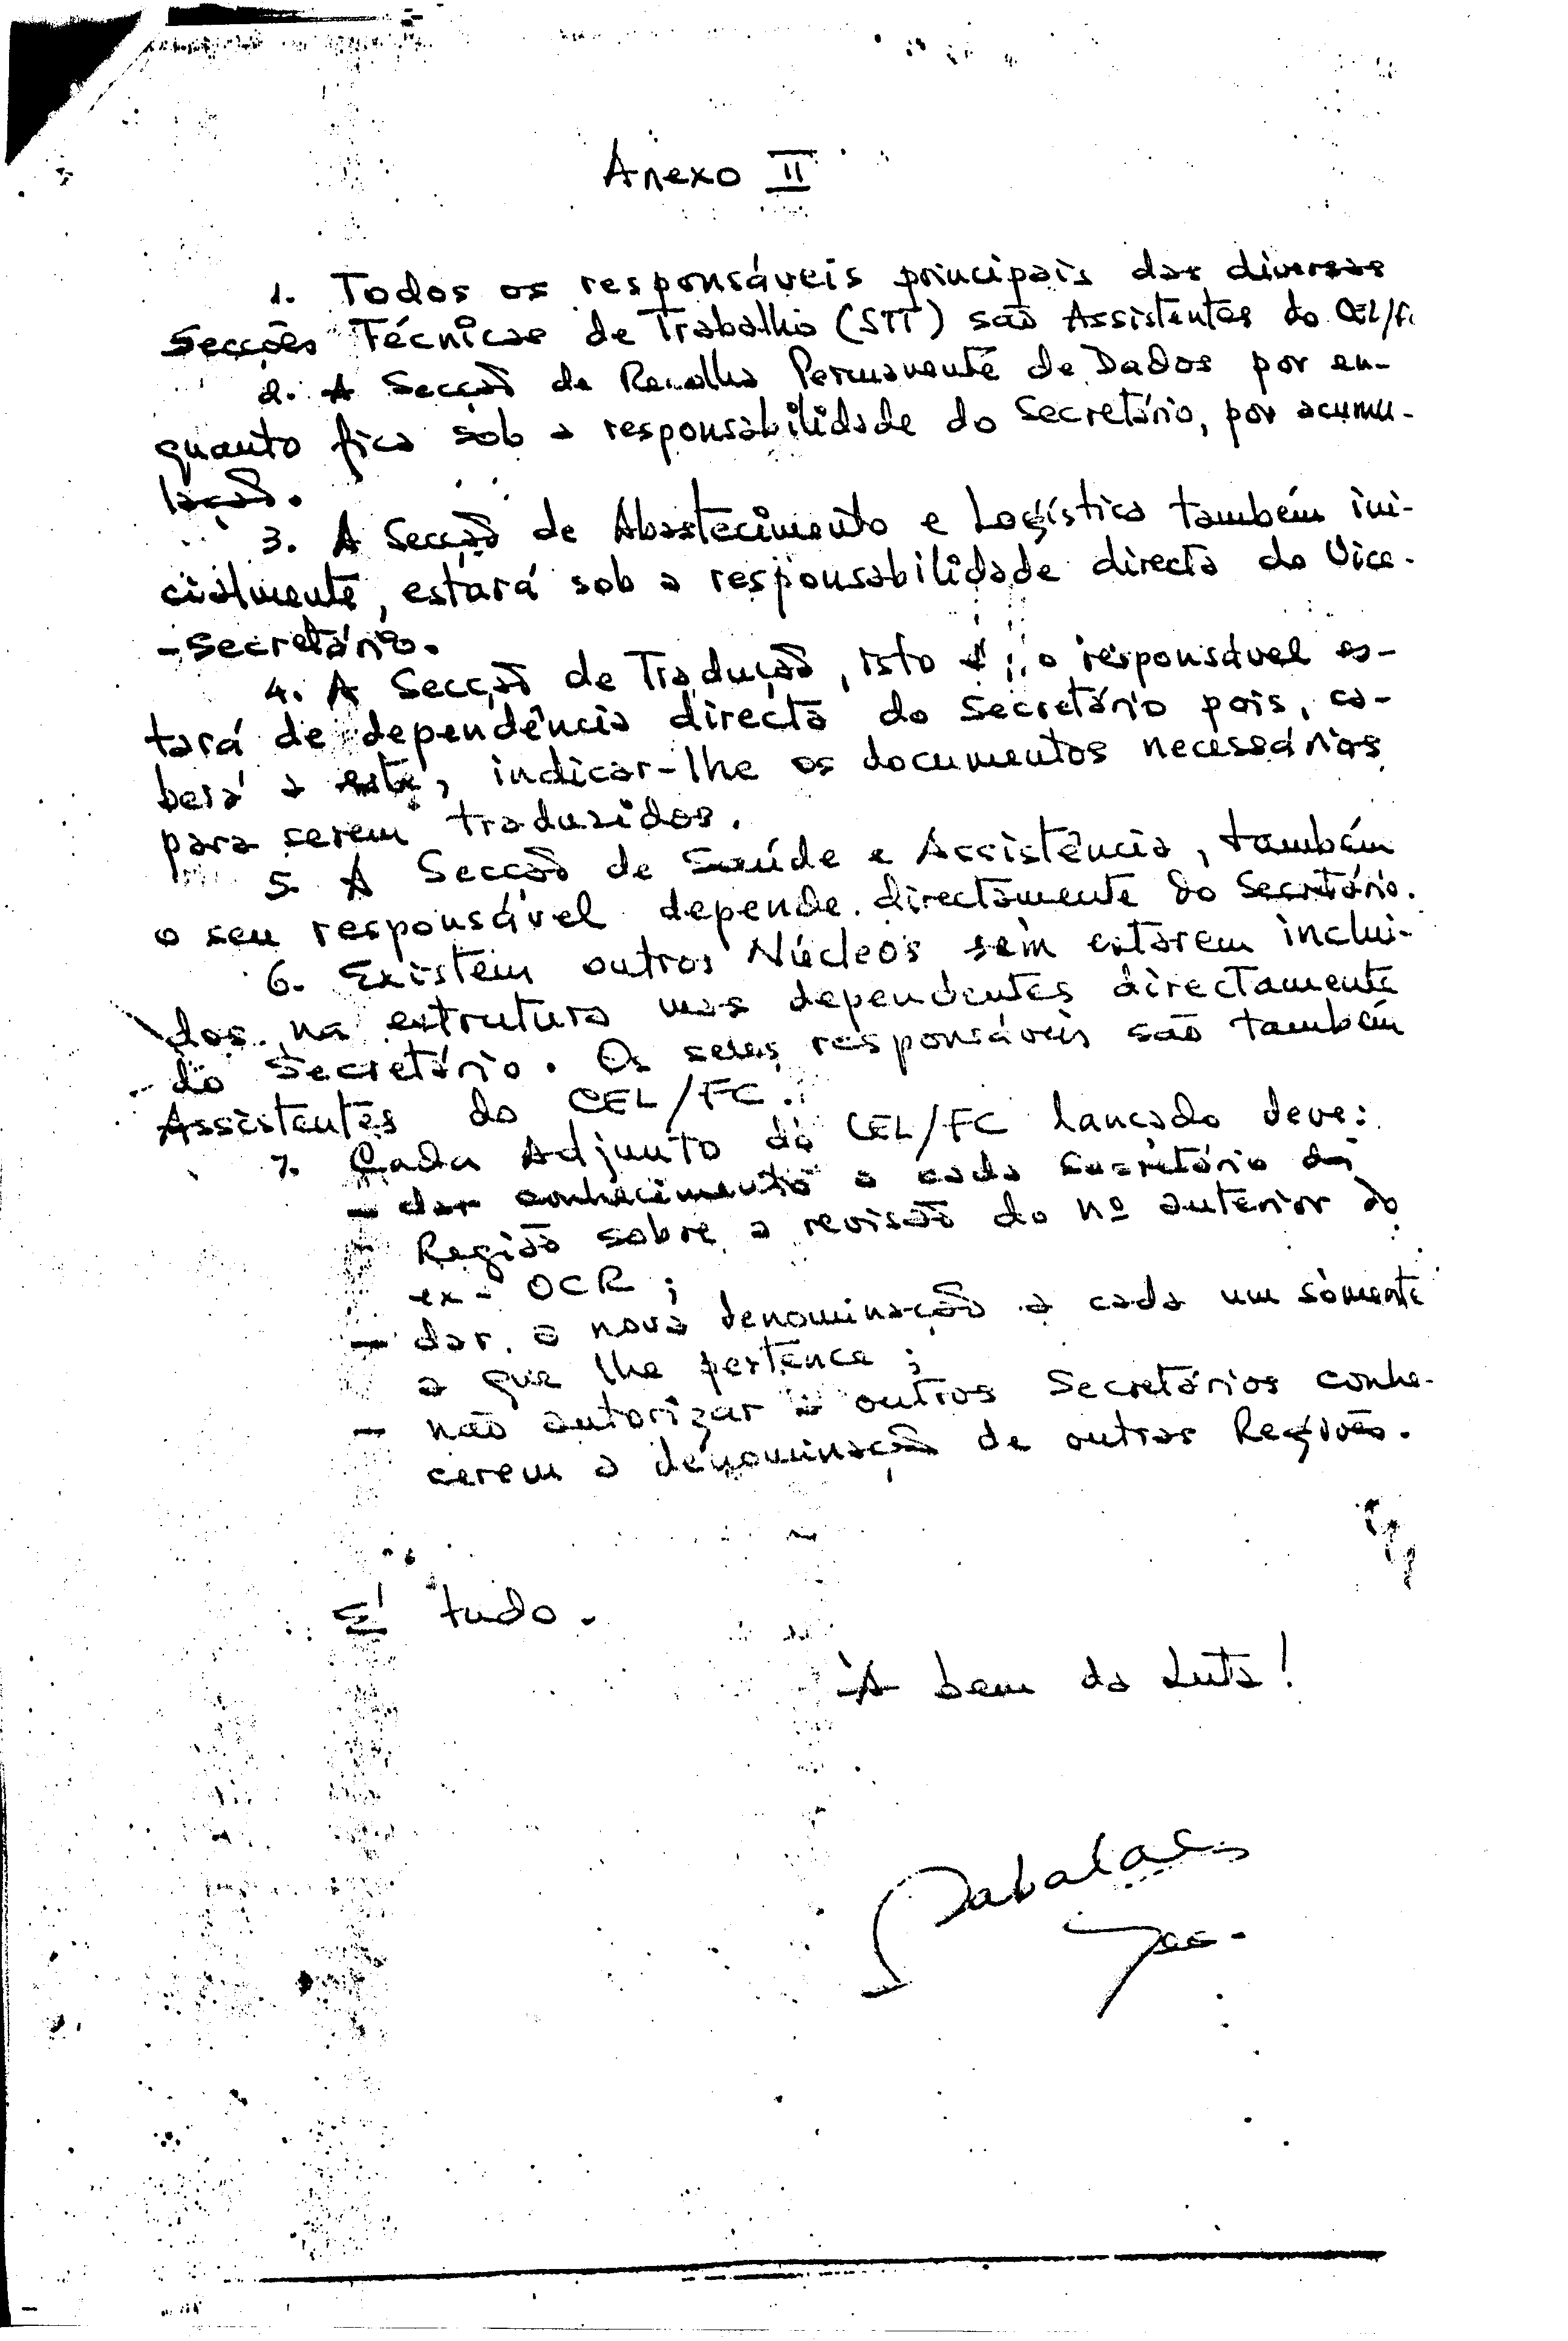 Anexo II
1. Todos os responsáveis principais das diversas
Secções Técnicas de Trabalho (STT) são Assistentes do CEL/FC
2. A Secção de Recolha Permanente de Dados por en-
quanto fica sob a responsabilidade do Secretário, por acumu-
lação.
3. A Secção de Abastecimento e Logística também ini-
cialmente, estará sob a responsabilidade directa do Vice-
-Secretário.
4. A Secção de Tradução, isto é, o responsável es-
tará de dependência directa do Secretário pois, ca-
berá a este, indicar-lhe os documentos necessários
para serem traduzidos.
5. A Secção de Saúde e Assistência, também
o seu responsável depende directamente do Secretário.
6. Existem outros Núcleos sem estarem inclui-
dos na estrutura mas dependentes directamente
do Secretário. Os seus responsáveis são também
Assistentes do CEL/FC.
7. Cada Adjunto do CEL/FC lançado deve:
- dar conhecimento a cada Secretário da
Região sobre a revisão do nº anterior do
ex-OCR;
- dar a nova denominação a cada um sòmente
a que lhe pertence;
- não autorizar a outros Secretários conhe-
cerem a denominação de outras Regiões.
É tudo.
À bem da Luta!